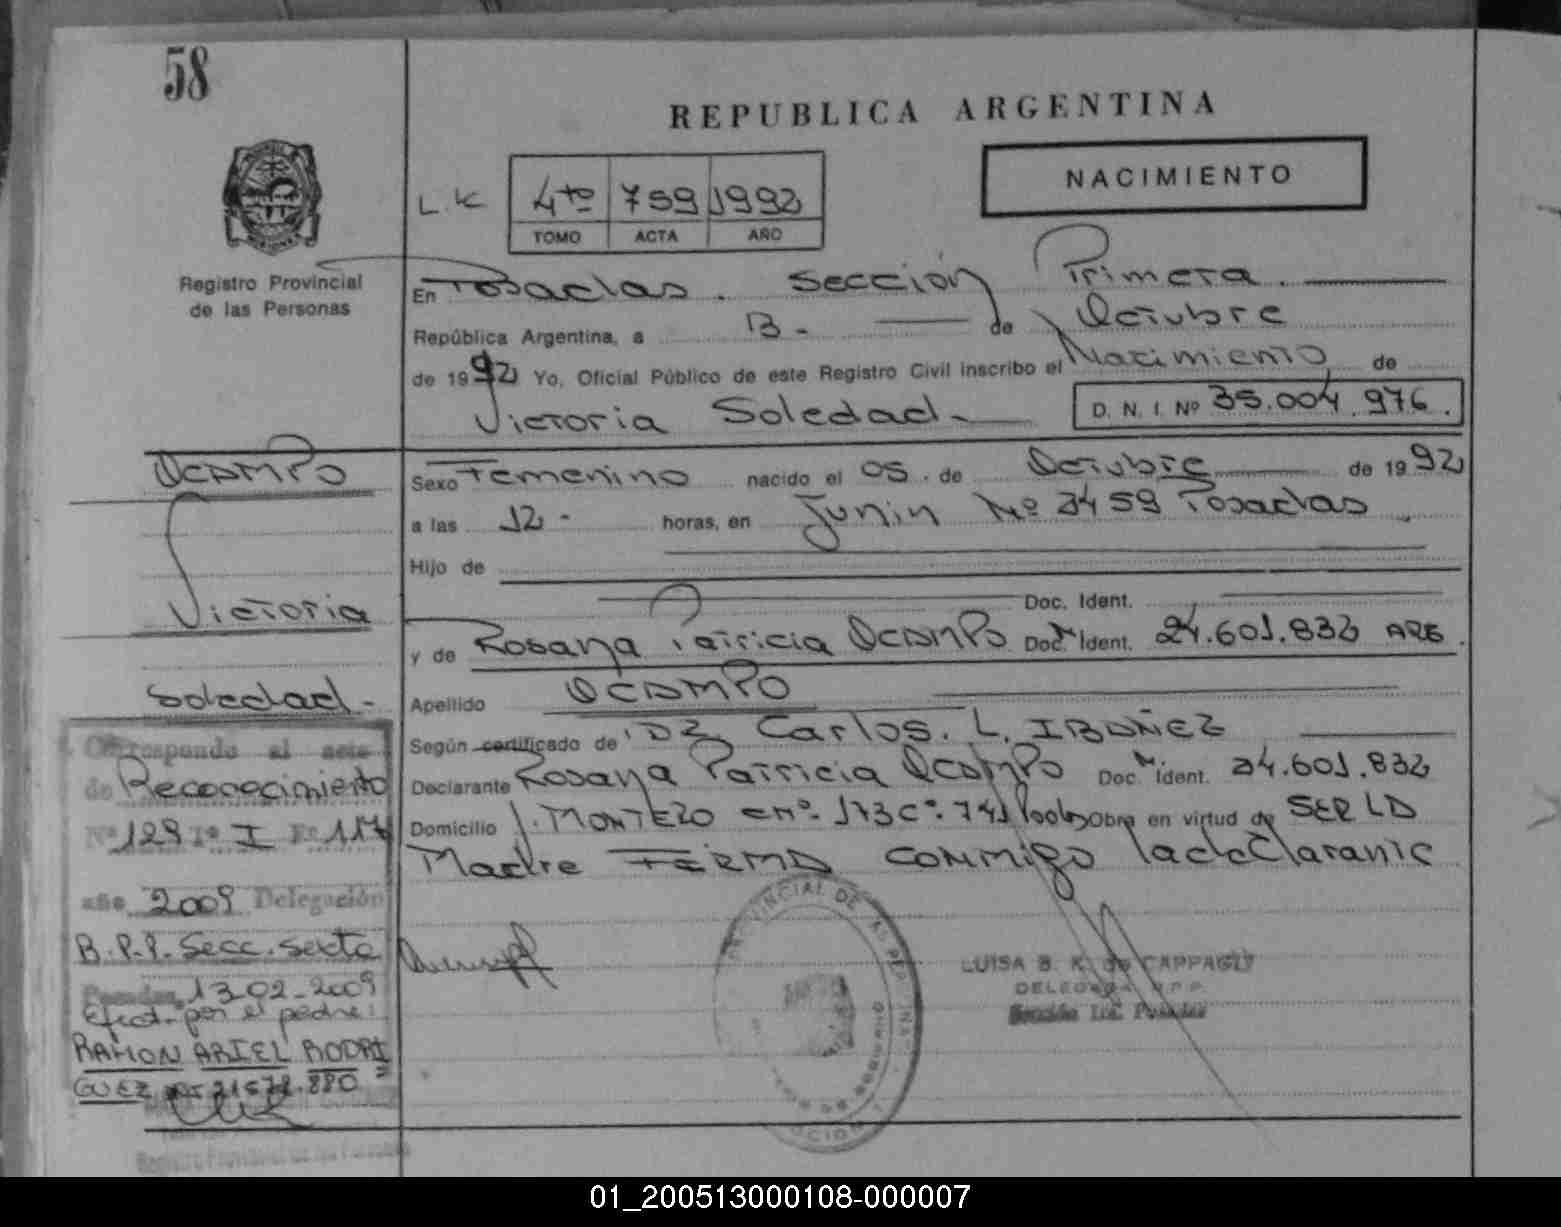 58
REPUBLICA ARGENTINA
NACIMIENTO
L.K 4to 759 1992
TOMO ACTA AÑO
Registro Provincial
de las Personas
En Posadas. Sección Primera.
República Argentina, a 13.- de Octubre
de 1992 Yo, Oficial Público de este Registro Civil inscribo el Nacimiento de
Victoria Soledad.- D. N. I. Nº 35.004.976.
OCAMPO
Victoria
Soledad.-
Sexo Femenino nacido el 05. de Octubre de 1992
a las 12.- horas, en Junin Nº 2459 Posadas.
Hijo de
Doc. Ident.
y de Rosana Patricia OCAMPO Doc. Ident. 24.601.832 ARG.
Apellido OCAMPO
Según certificado de Dr. Carlos. L. IBAÑEZ
Declarante Rosana Patricia OCAMPO Doc. Ident. 24.601.832
Domicilio Obra en virtud de SER LA
Madre FIRMA conmigo la declarante
Corresponde al acta
de Reconocimiento
Nº 129 Tº I Fº 117
año 2009 Delegación
R.P.P. Secc. Sexta
Posadas, 13-02-2009
Efect. por el padre:
RAMON ARIEL RODRI
GUEZ
LUISA B. K. de CAPPAGLY
DELEGADA R.P.P.
Sección 1ra. Posadas
Registro Provincial de las Personas
01_200513000108-000007